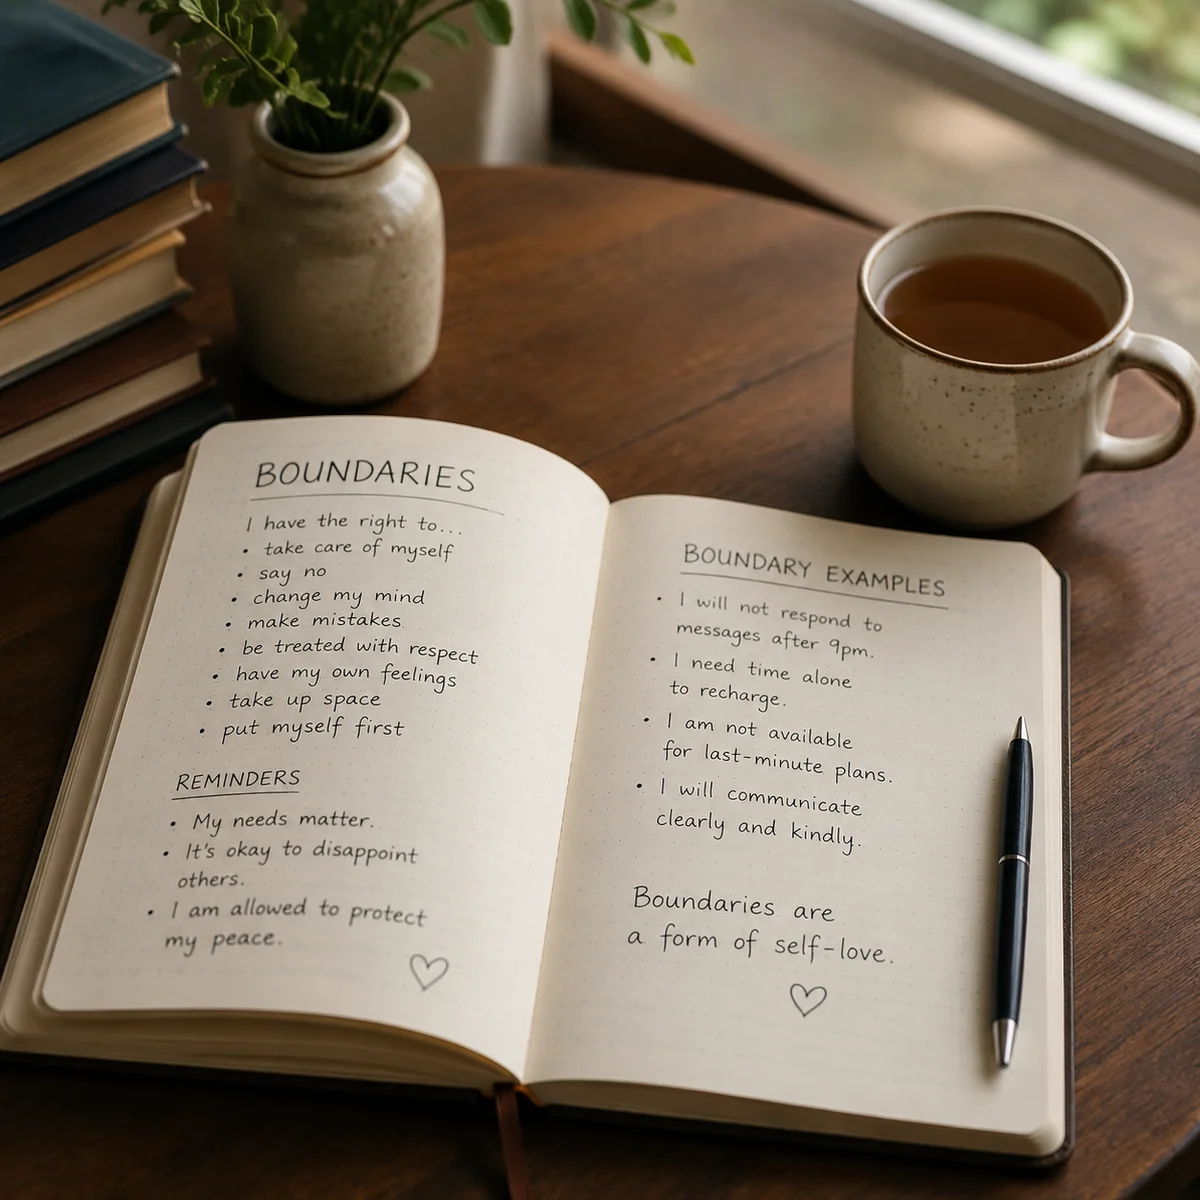 BOUNDARIES
I have the right to...
• take care of myself
• say no
• change my mind
• make mistakes
• be treated with respect
• have my own feelings
• take up space
• put myself first
REMINDERS
• My needs matter.
• It's okay to disappoint
others.
• I am allowed to protect
my peace.
BOUNDARY EXAMPLES
• I will not respond to
messages after 9pm.
• I need time alone
to recharge.
• I am not available
for last-minute plans.
• I will communicate
clearly and kindly.
Boundaries are
a form of self-love.